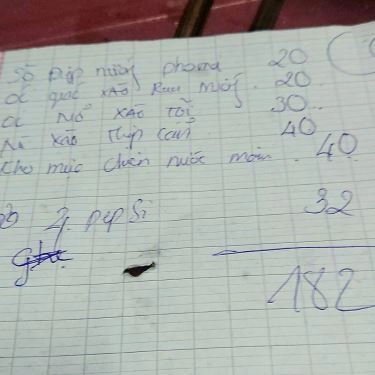 Sò Điệp nướng phomai 20
ốc giác xào Rau muống. 20
ốc Mỡ XÀO TỎI 30
Mì xào Thập Cẩm 40
Kho mực chiên nước mắm. 40
2. pepsi 32
182